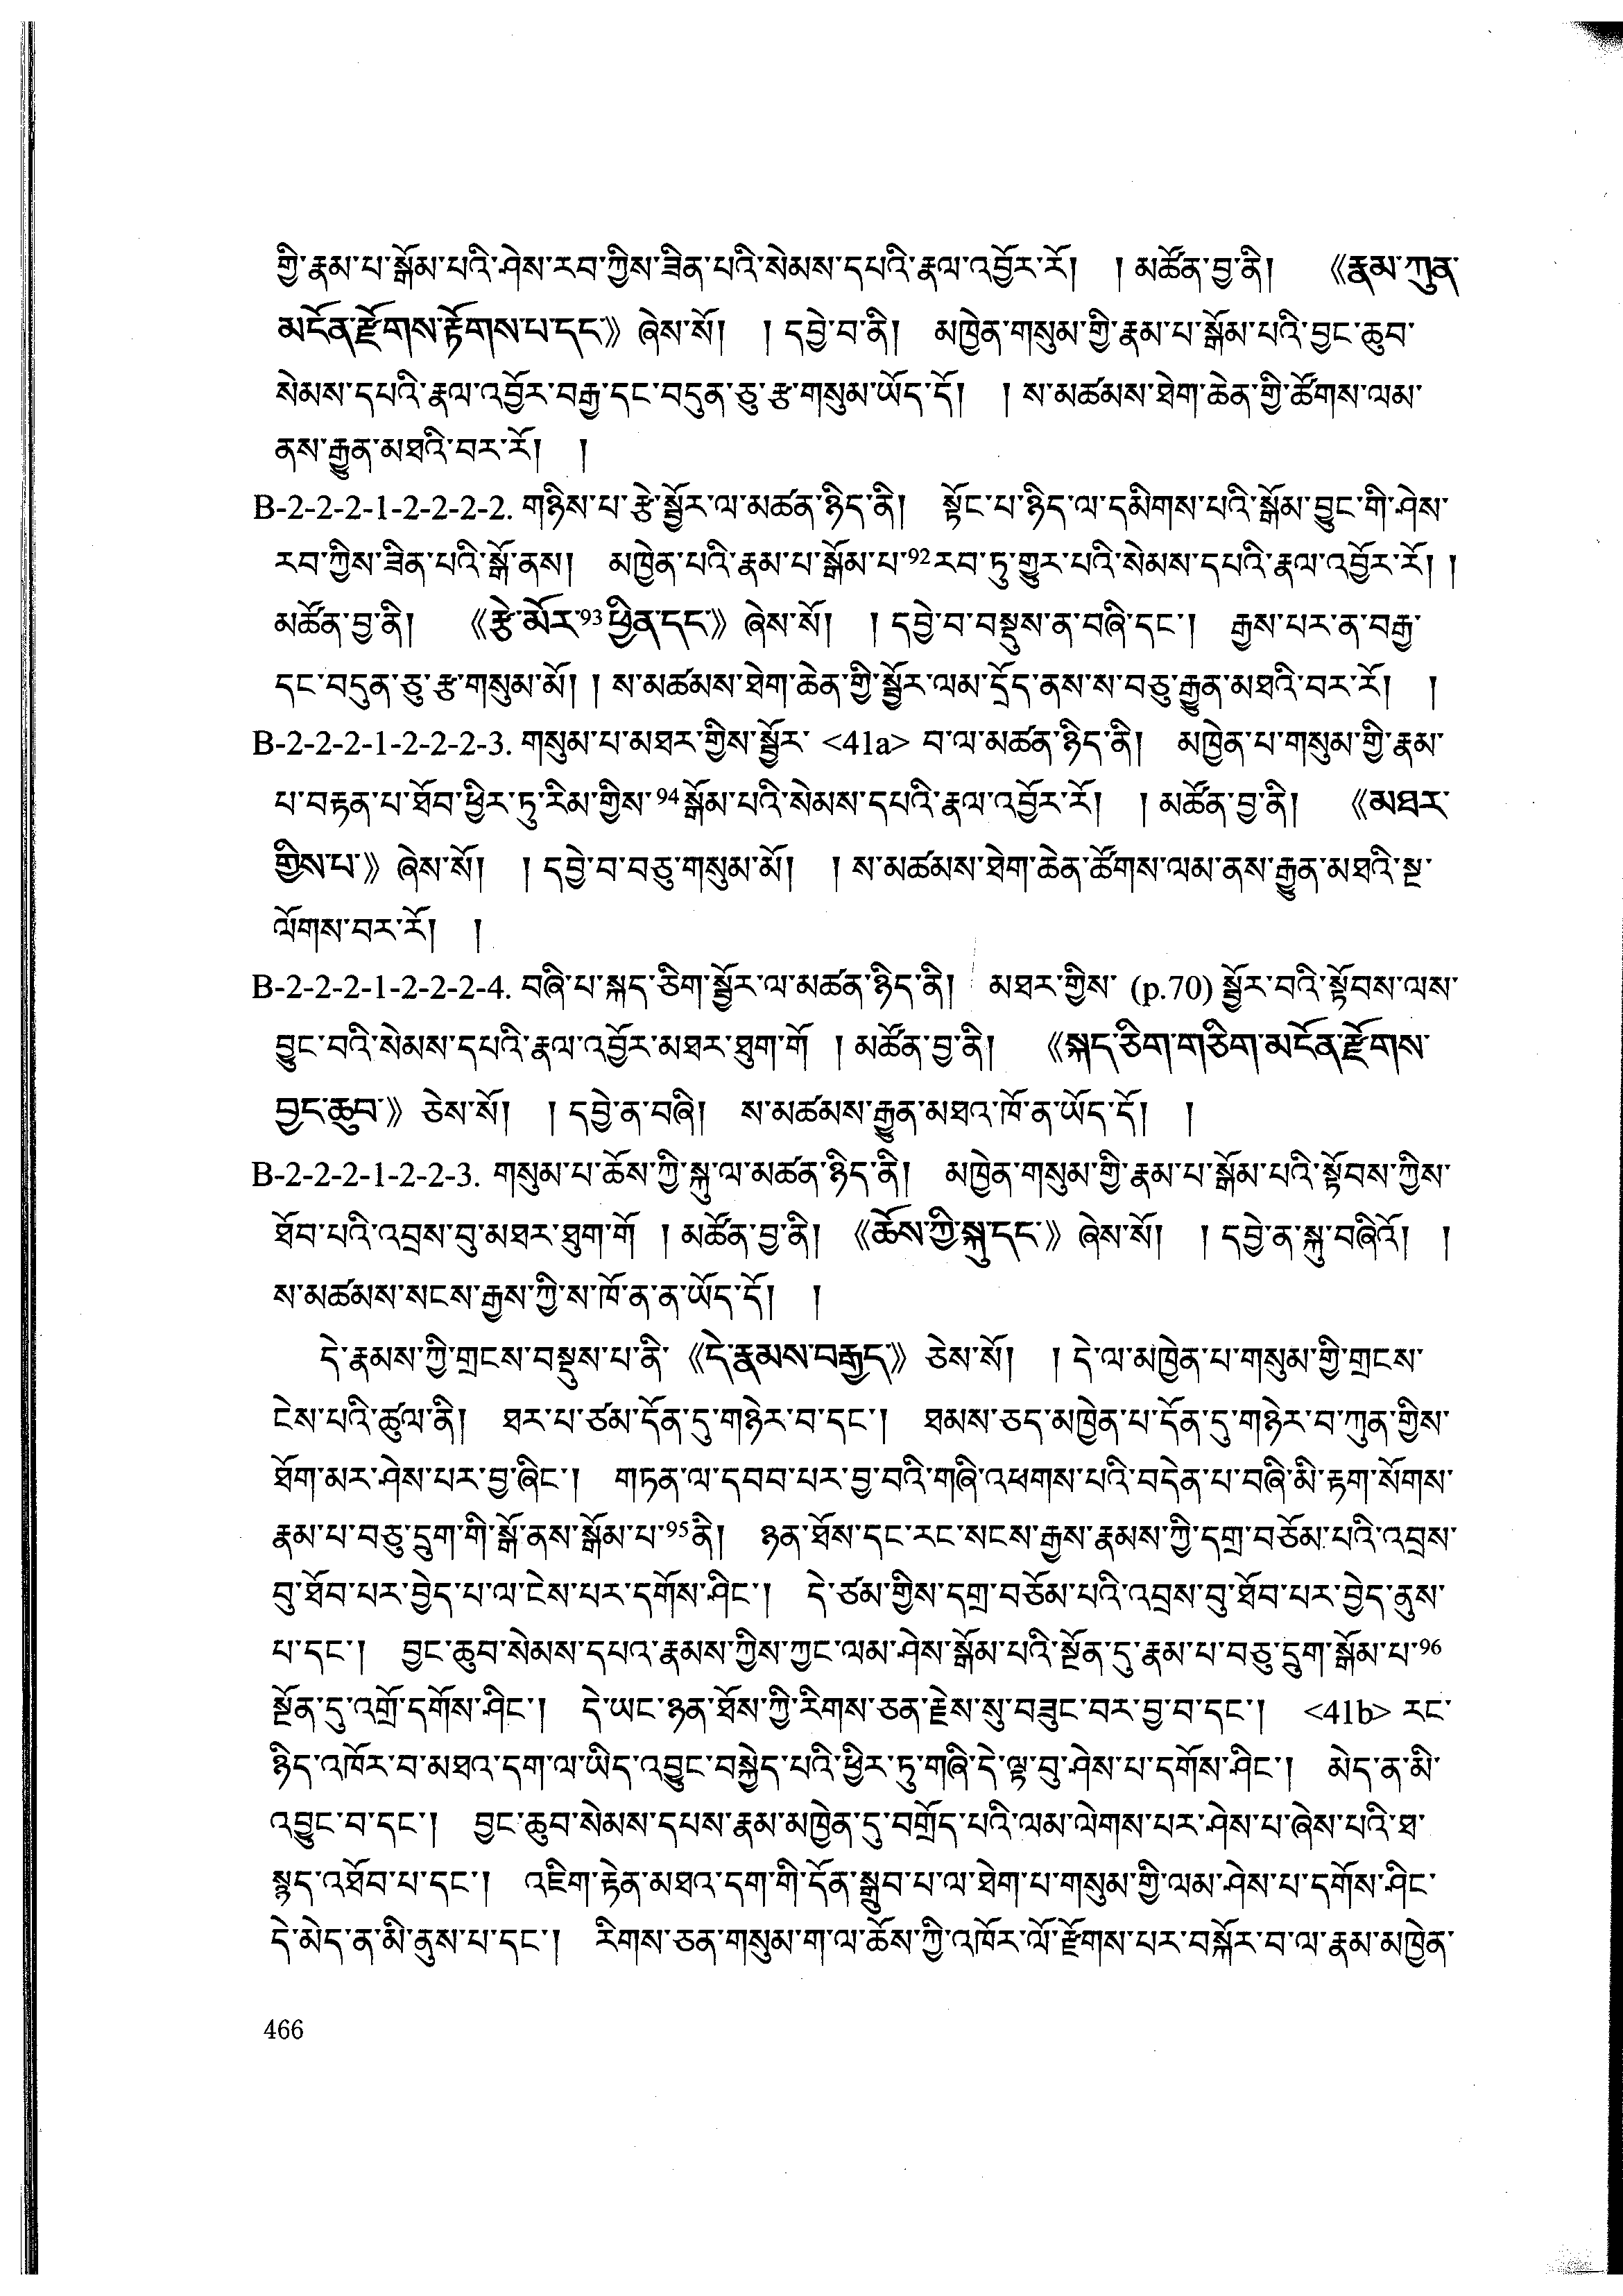 གྱི་རྣམ་པ་སྒོམ་པའི་ཤེས་རབ་ཀྱིས་ཟིན་པའི་སེམས་དཔའི་རྣལ་འབྱོར་རོ། །མཚོན་བྱ་ནི། 《རྣམ་ཀུན་
མངོན་རྫོགས་རྟོགས་པ་དང་》 ཞེས་སོ། །དབྱེ་བ་ནི། མཁྱེན་གསུམ་གྱི་རྣམ་པ་སྒོམ་པའི་བྱང་ཆུབ་
སེམས་དཔའི་རྣལ་འབྱོར་བརྒྱ་དང་བདུན་ཅུ་རྩ་གསུམ་ཡོད་དོ། །ས་མཚམས་ཐེག་ཆེན་གྱི་ཚོགས་ལམ་
ནས་རྒྱུན་མཐའི་བར་རོ། །
B-2-2-2-1-2-2-2-2. གཉིས་པ་རྩེ་སྦྱོར་ལ་མཚན་ཉིད་ནི། སྟོང་པ་ཉིད་ལ་དམིགས་པའི་སྒོམ་བྱུང་གི་ཤེས་
རབ་ཀྱིས་ཟིན་པའི་སྒོ་ནས། མཁྱེན་པའི་རྣམ་པ་སྒོམ་པ་92རབ་ཏུ་གྱུར་པའི་སེམས་དཔའི་རྣལ་འབྱོར་རོ། །
མཚོན་བྱ་ནི། 《རྩེ་མོར་93ཕྱིན་དང་》 ཞེས་སོ། །དབྱེ་བ་བསྡུས་ན་བཞི་དང་། རྒྱས་པར་ན་བརྒྱ་
དང་བདུན་ཅུ་རྩ་གསུམ་མོ། །ས་མཚམས་ཐེག་ཆེན་གྱི་སྦྱོར་ལམ་དྲོད་ནས་ས་བཅུ་རྒྱུན་མཐའི་བར་རོ། །
B-2-2-2-1-2-2-2-3. གསུམ་པ་མཐར་གྱིས་སྦྱོར་ <41a> བ་ལ་མཚན་ཉིད་ནི། མཁྱེན་པ་གསུམ་གྱི་རྣམ་
པ་བརྟན་པ་ཐོབ་ཕྱིར་ཏུ་རིམ་གྱིས་94སྒོམ་པའི་སེམས་དཔའི་རྣལ་འབྱོར་རོ། །མཚོན་བྱ་ནི། 《མཐར་
གྱིས་པ་》 ཞེས་སོ། །དབྱེ་བ་བཅུ་གསུམ་མོ། །ས་མཚམས་ཐེག་ཆེན་ཚོགས་ལམ་ནས་རྒྱུན་མཐའི་སྔ་
ལོགས་བར་རོ། །
B-2-2-2-1-2-2-2-4. བཞི་པ་སྐད་ཅིག་སྦྱོར་ལ་མཚན་ཉིད་ནི། མཐར་གྱིས་ (p.70) སྦྱོར་བའི་སྟོབས་ལས་
བྱུང་བའི་སེམས་དཔའི་རྣལ་འབྱོར་མཐར་ཐུག་གོ །མཚོན་བྱ་ནི། 《སྐད་ཅིག་གཅིག་མངོན་རྫོགས་
བྱང་ཆུབ་》 ཅེས་སོ། །དབྱེ་ན་བཞི། ས་མཚམས་རྒྱུན་མཐའ་ཁོ་ན་ཡོད་དོ། །
B-2-2-2-1-2-2-3. གསུམ་པ་ཆོས་ཀྱི་སྐུ་ལ་མཚན་ཉིད་ནི། མཁྱེན་གསུམ་གྱི་རྣམ་པ་སྒོམ་པའི་སྟོབས་ཀྱིས་
ཐོབ་པའི་འབྲས་བུ་མཐར་ཐུག་གོ །མཚོན་བྱ་ནི། 《ཆོས་ཀྱི་སྐུ་དང་》 ཞེས་སོ། །དབྱེ་ན་སྐུ་བཞིའོ། །
ས་མཚམས་སངས་རྒྱས་ཀྱི་ས་ཁོ་ན་ན་ཡོད་དོ། །
དེ་རྣམས་ཀྱི་གྲངས་བསྡུས་པ་ནི་ 《དེ་རྣམས་བརྒྱད་》 ཅེས་སོ། །དེ་ལ་མཁྱེན་པ་གསུམ་གྱི་གྲངས་
ངེས་པའི་ཚུལ་ནི། ཐར་པ་ཙམ་དོན་དུ་གཉེར་བ་དང་། ཐམས་ཅད་མཁྱེན་པ་དོན་དུ་གཉེར་བ་ཀུན་གྱིས་
ཐོག་མར་ཤེས་པར་བྱ་ཞིང་། གཏན་ལ་དབབ་པར་བྱ་བའི་གཞི་འཕགས་པའི་བདེན་པ་བཞི་མི་རྟག་སོགས་
རྣམ་པ་བཅུ་དྲུག་གི་སྒོ་ནས་སྒོམ་པ་95ནི། ཉན་ཐོས་དང་རང་སངས་རྒྱས་རྣམས་ཀྱི་དགྲ་བཅོམ་པའི་འབྲས་
བུ་ཐོབ་པར་བྱེད་པ་ལ་ངེས་པར་དགོས་ཤིང་། དེ་ཙམ་གྱིས་དགྲ་བཅོམ་པའི་འབྲས་བུ་ཐོབ་པར་བྱེད་ནུས་
པ་དང་། བྱང་ཆུབ་སེམས་དཔའ་རྣམས་ཀྱིས་ཀྱང་ལམ་ཤེས་སྒོམ་པའི་སྔོན་དུ་རྣམ་པ་བཅུ་དྲུག་སྒོམ་པ་96
སྔོན་དུ་འགྲོ་དགོས་ཤིང་། དེ་ཡང་ཉན་ཐོས་ཀྱི་རིགས་ཅན་རྗེས་སུ་བཟུང་བར་བྱ་བ་དང་། <41b> རང་
ཉིད་འཁོར་བ་མཐའ་དག་ལ་ཡིད་འབྱུང་བསྐྱེད་པའི་ཕྱིར་ཏུ་གཞི་དེ་ལྟ་བུ་ཤེས་པ་དགོས་ཤིང་། མེད་ན་མི་
འབྱུང་བ་དང་། བྱང་ཆུབ་སེམས་དཔས་རྣམ་མཁྱེན་དུ་བགྲོད་པའི་ལམ་ལེགས་པར་ཤེས་པ་ཞེས་པའི་ཐ་
སྙད་འཐོབ་པ་དང་། འཇིག་རྟེན་མཐའ་དག་གི་དོན་སྒྲུབ་པ་ལ་ཐེག་པ་གསུམ་གྱི་ལམ་ཤེས་པ་དགོས་ཤིང་
དེ་མེད་ན་མི་ནུས་པ་དང་། རིགས་ཅན་གསུམ་ག་ལ་ཆོས་ཀྱི་འཁོར་ལོ་རྫོགས་པར་བསྐོར་བ་ལ་རྣམ་མཁྱེན་
466